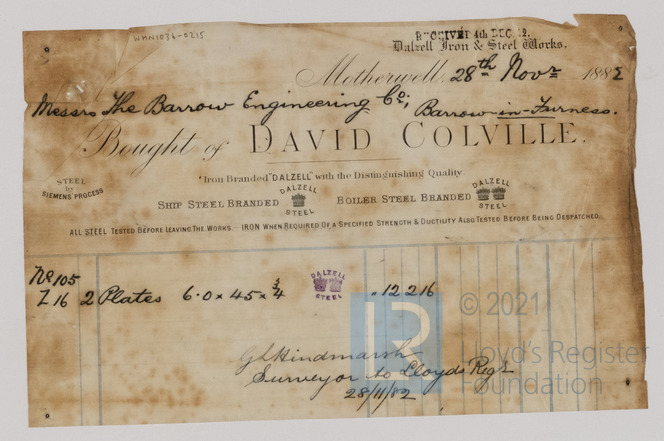 WHN1036-0215
RECEIVED 4th DEC 82.
Dalzell Iron & Steel Works.
Motherwell, 28th Novr 1882
Messrs The Barrow Engineering Co., Barrow-in-Furness.
Bought of DAVID COLVILLE.
Iron Branded "DALZELL" with the Distinguishing Quality
STEEL by SIEMENS PROCESS
SHIP STEEL BRANDED DALZELL STEEL BOILER STEEL BRANDED DALZELL STEEL
ALL STEEL TESTED BEFORE LEAVING THE WORKS.—IRON WHEN REQUIRED OF A SPECIFIED STRENGTH & DUCTILITY ALSO TESTED BEFORE BEING DESPATCHED.
No 105
Z 16 2 Plates 6.0 x 45 x 3/4 DALZELL STEEL " 12 2 16
LR
© 2021
Lloyd's Register
Foundation
Hindmarsh
Surveyor to Lloyds Regr
28/11/82